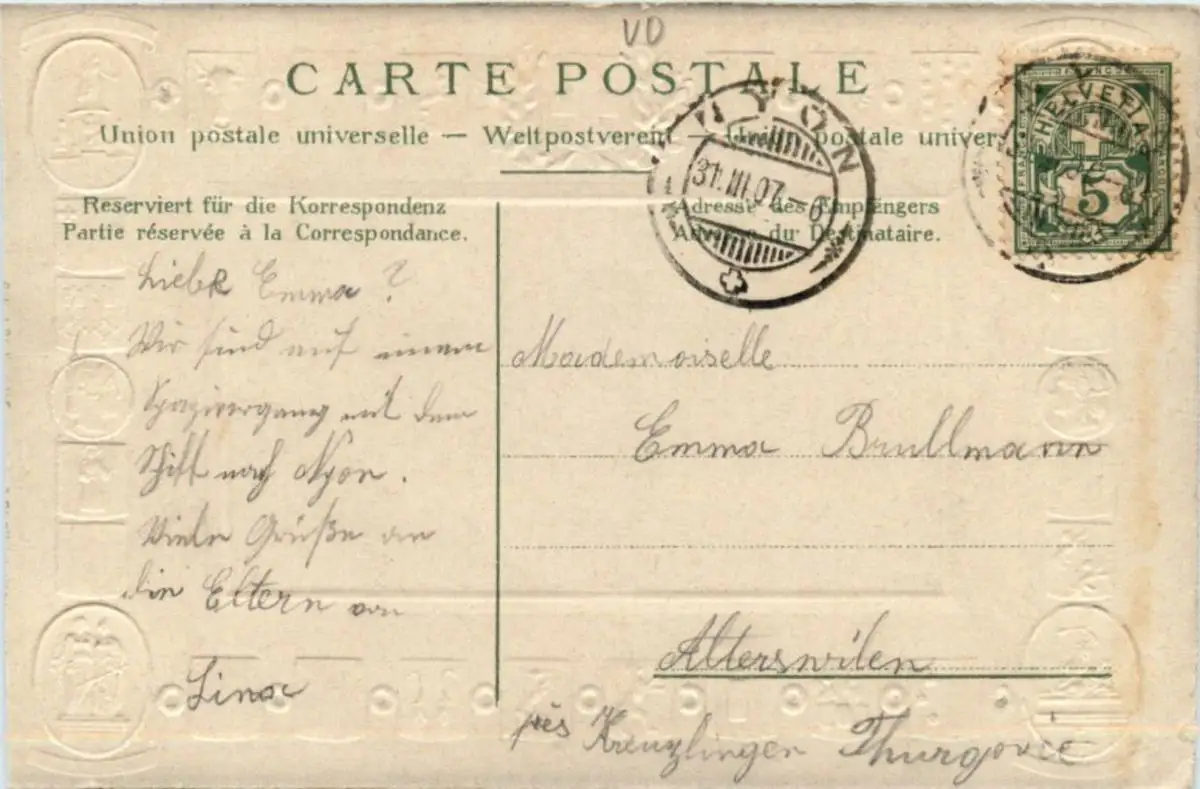 VD
CARTE POSTALE
Union postale universelle — Weltpostverein — Union postale univer
NYON
31.III.07.–6
HELVETIA
FRANCO
5
Reserviert für die Korrespondenz
Partie réservée à la Correspondance.
Adresse des Empfängers
Adresse du Destinataire.
Liebe Emma?
Wir sind auf einem
Spaziergang mit dem
Schiff nach Nyon.
Viele Grüße an
die Eltern von
Lina
Mademoiselle
Emma Brullmann
Alterswilen
près Kreuzlingen Thurgovie